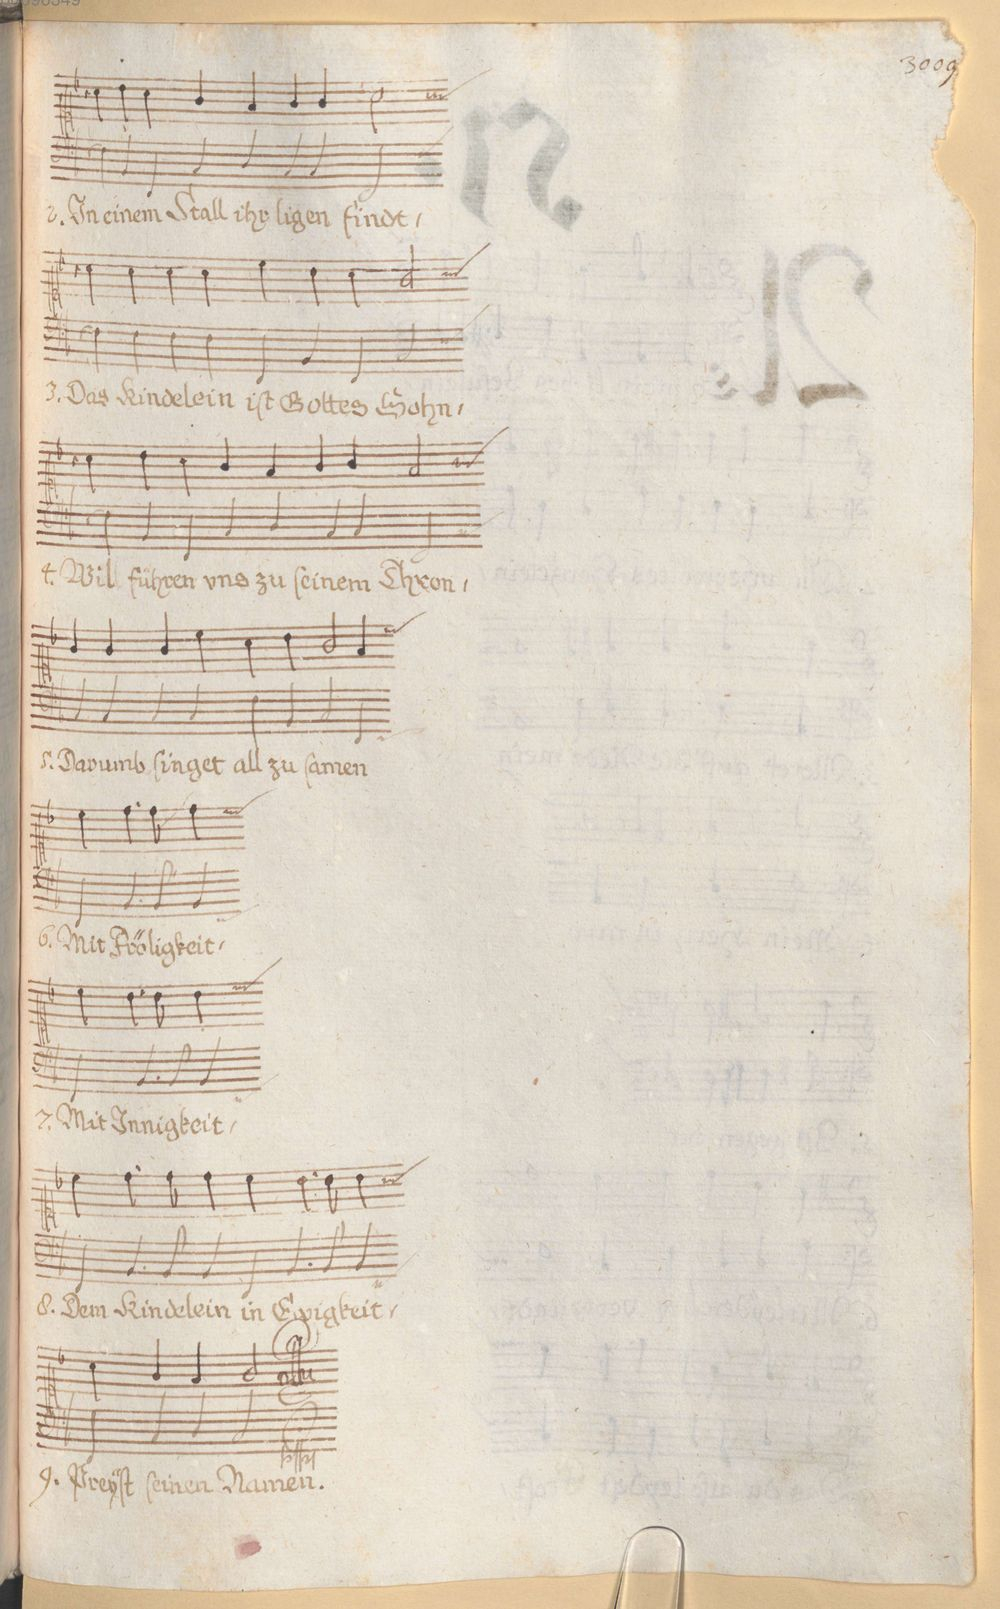 3009
2. In einem Stall ihr ligen findt,
3. Das Kindelein ist Gottes Sohn,
4. Wil führen vns zu seinem Thron,
5. Darumb singet all zu samen
6. Mit Fröligkeit,
7. Mit Innigkeit,
8. Dem Kindelein in Ewigkeit,
9. Preÿst seinen Namen.